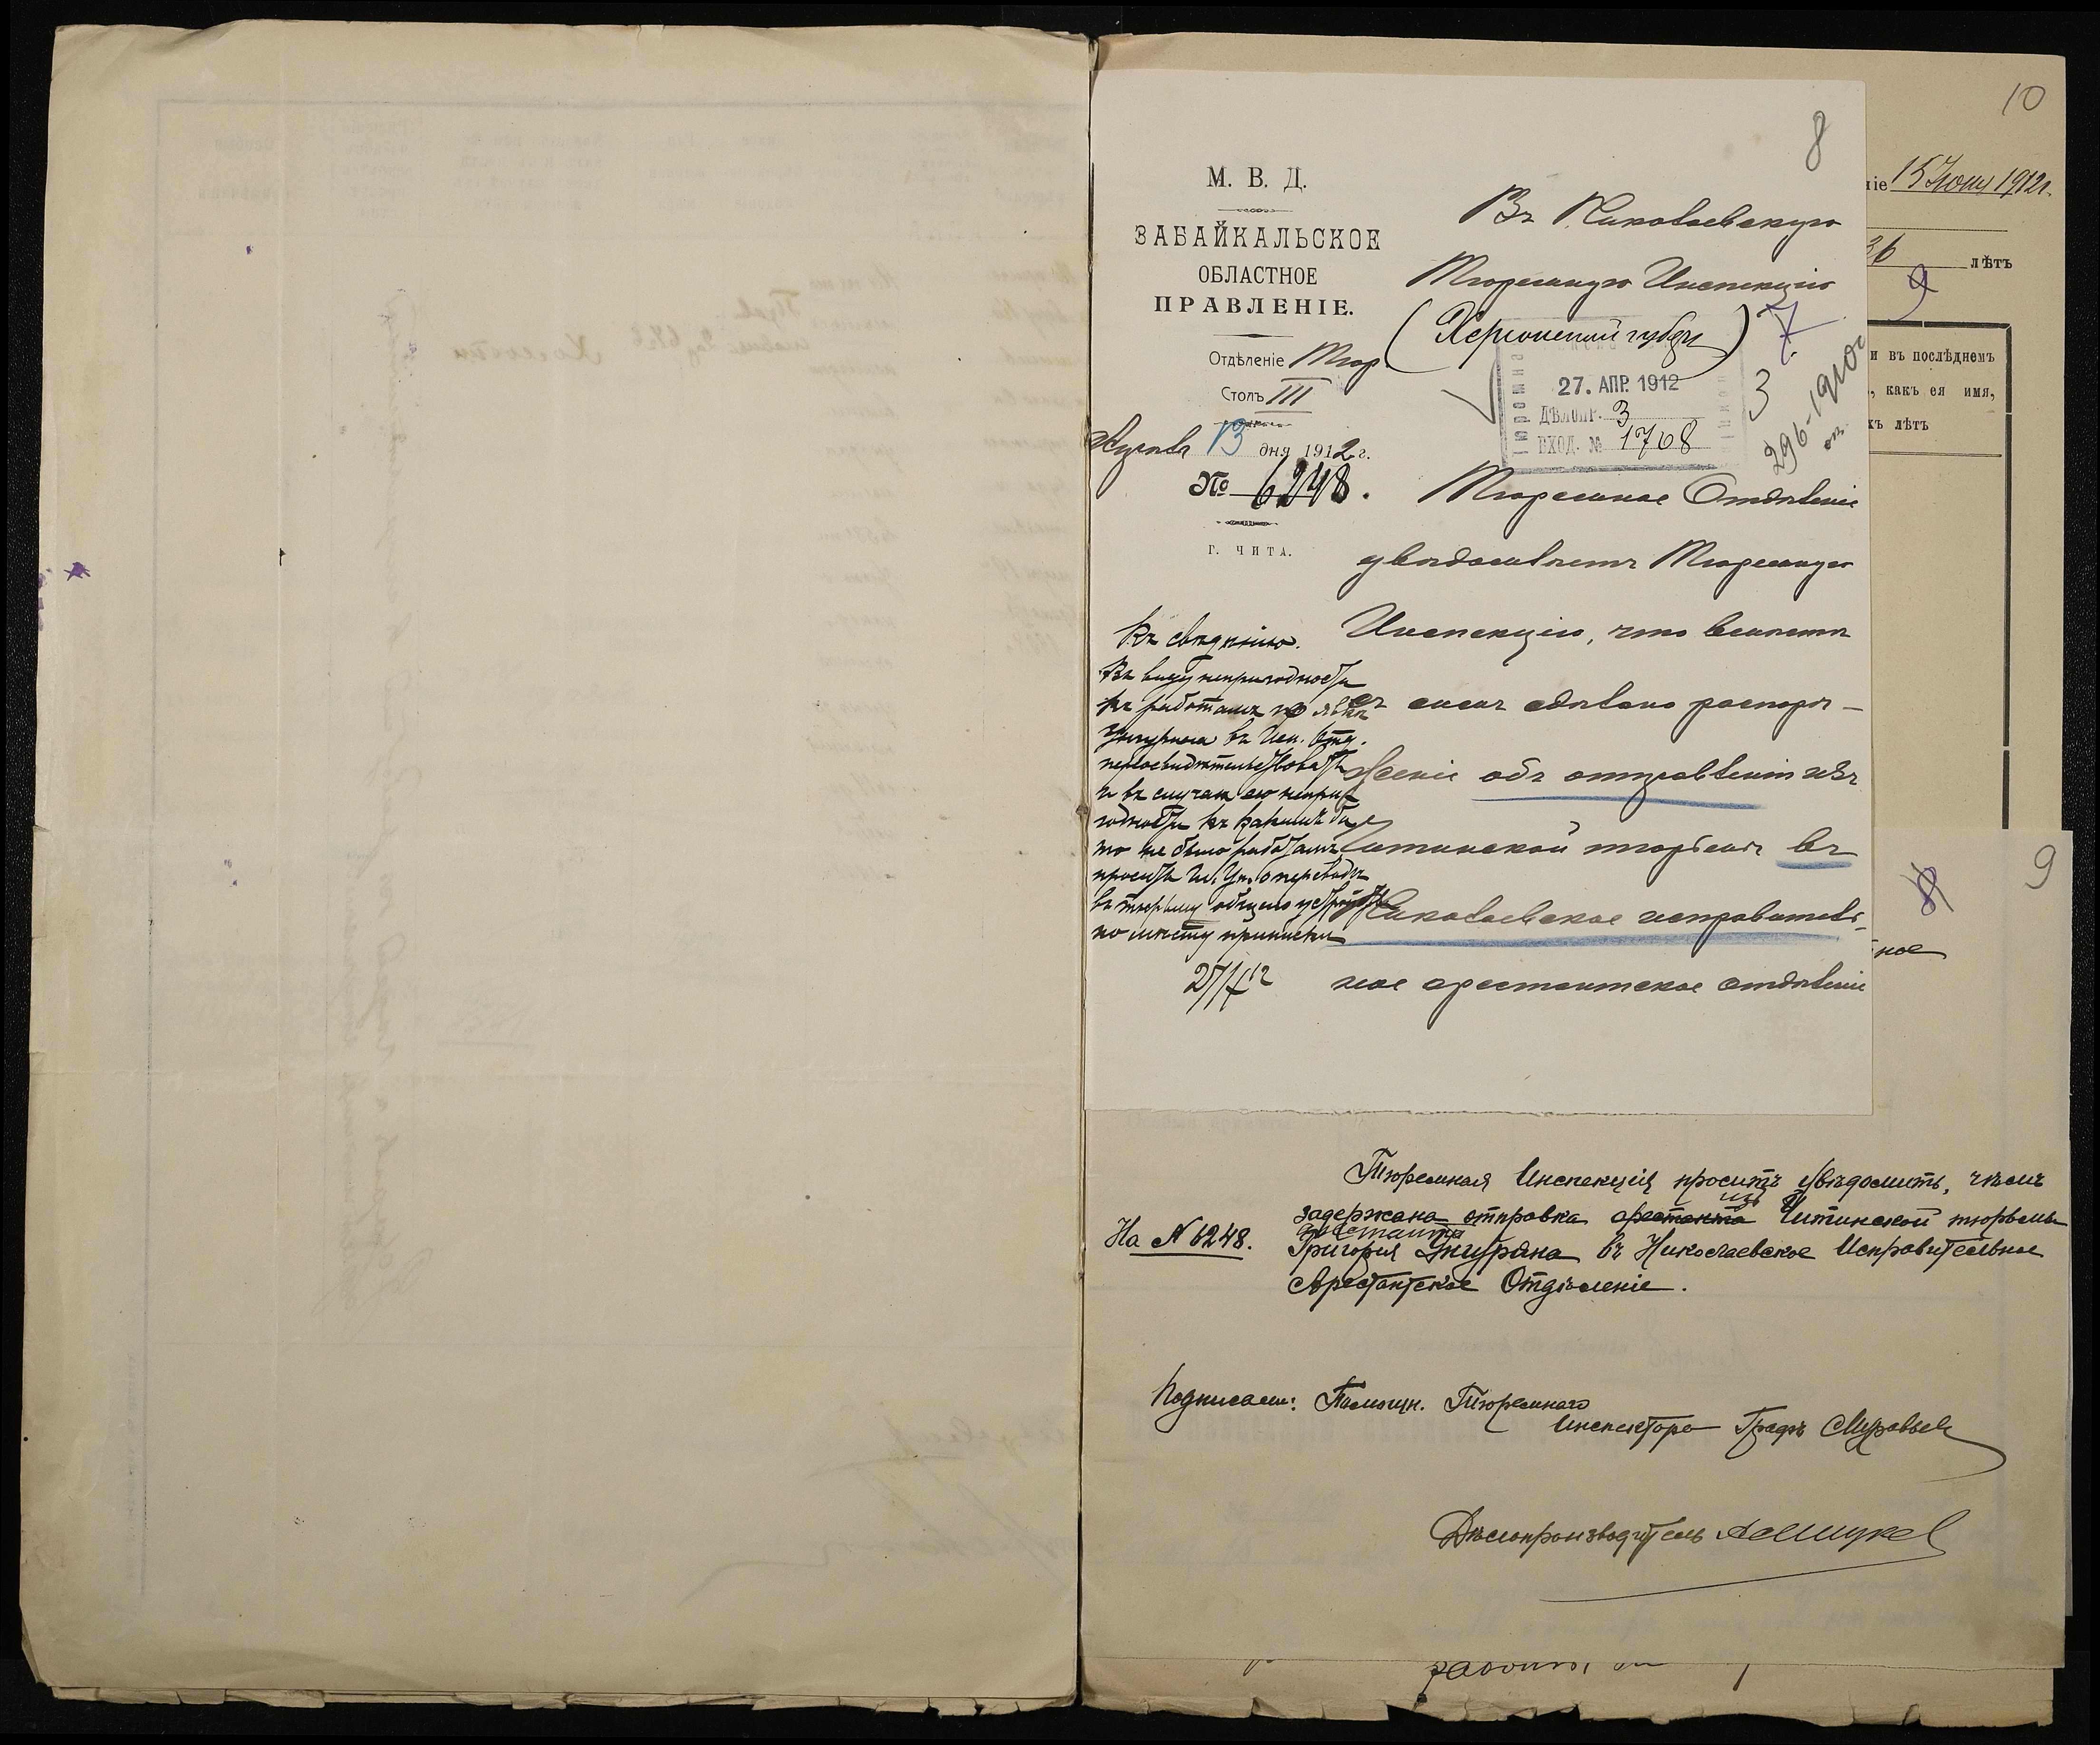 10
8
М. В. Д.
ЗАБАЙКАЛЬСКОЕ
ОБЛАСТНОЕ
ПРАВЛЕНІЕ.
Отдѣленіе Тюр.
Столъ III
13 дня 1912 г.
№ 6248.
Г. ЧИТА.
Въ Николаевскую
Тюремную Инспекцію
(Херсонской губ.)
7
27. АПР. 1912
ДѢЛОПР. 3
ВХОД. № 1768
3
Тюремное Отдѣленіе
увѣдомляетъ Тюремную
Инспекцію, что вмѣстѣ
съ симъ сдѣлано распоря-
женіе объ отправленіи изъ
Читинской тюрьмы въ
Николаевское исправитель-
ное арестантское отдѣленіе
Къ свѣдѣнію.
Въ виду непригодности
къ работамъ по явкѣ
въ Исп. Отд.
переосвидѣтельствовать
и въ случаѣ его непри-
годности къ какимъ бы
то не было работамъ
просить Гл. Упр. о переводѣ
въ тюрьму общаго устройства
по мѣсту приписки
ніе 15 Іюня 1912 г.
36 лѣтъ
9
и въ послѣднемъ
, какъ ея имя,
хъ лѣтъ
9
8
ное
Тюремная Инспекція проситъ увѣдомить, чѣмъ
задержана отправка арестанта изъ Читинской тюрьмы
арестанта
На № 6248. Григорія Жигуряна въ Николаевское Исправительное
Арестантское Отдѣленіе.
Подписали: Помощн. Тюремнаго
Инспектора Графъ Муравьевъ
Дѣлопроизводитель